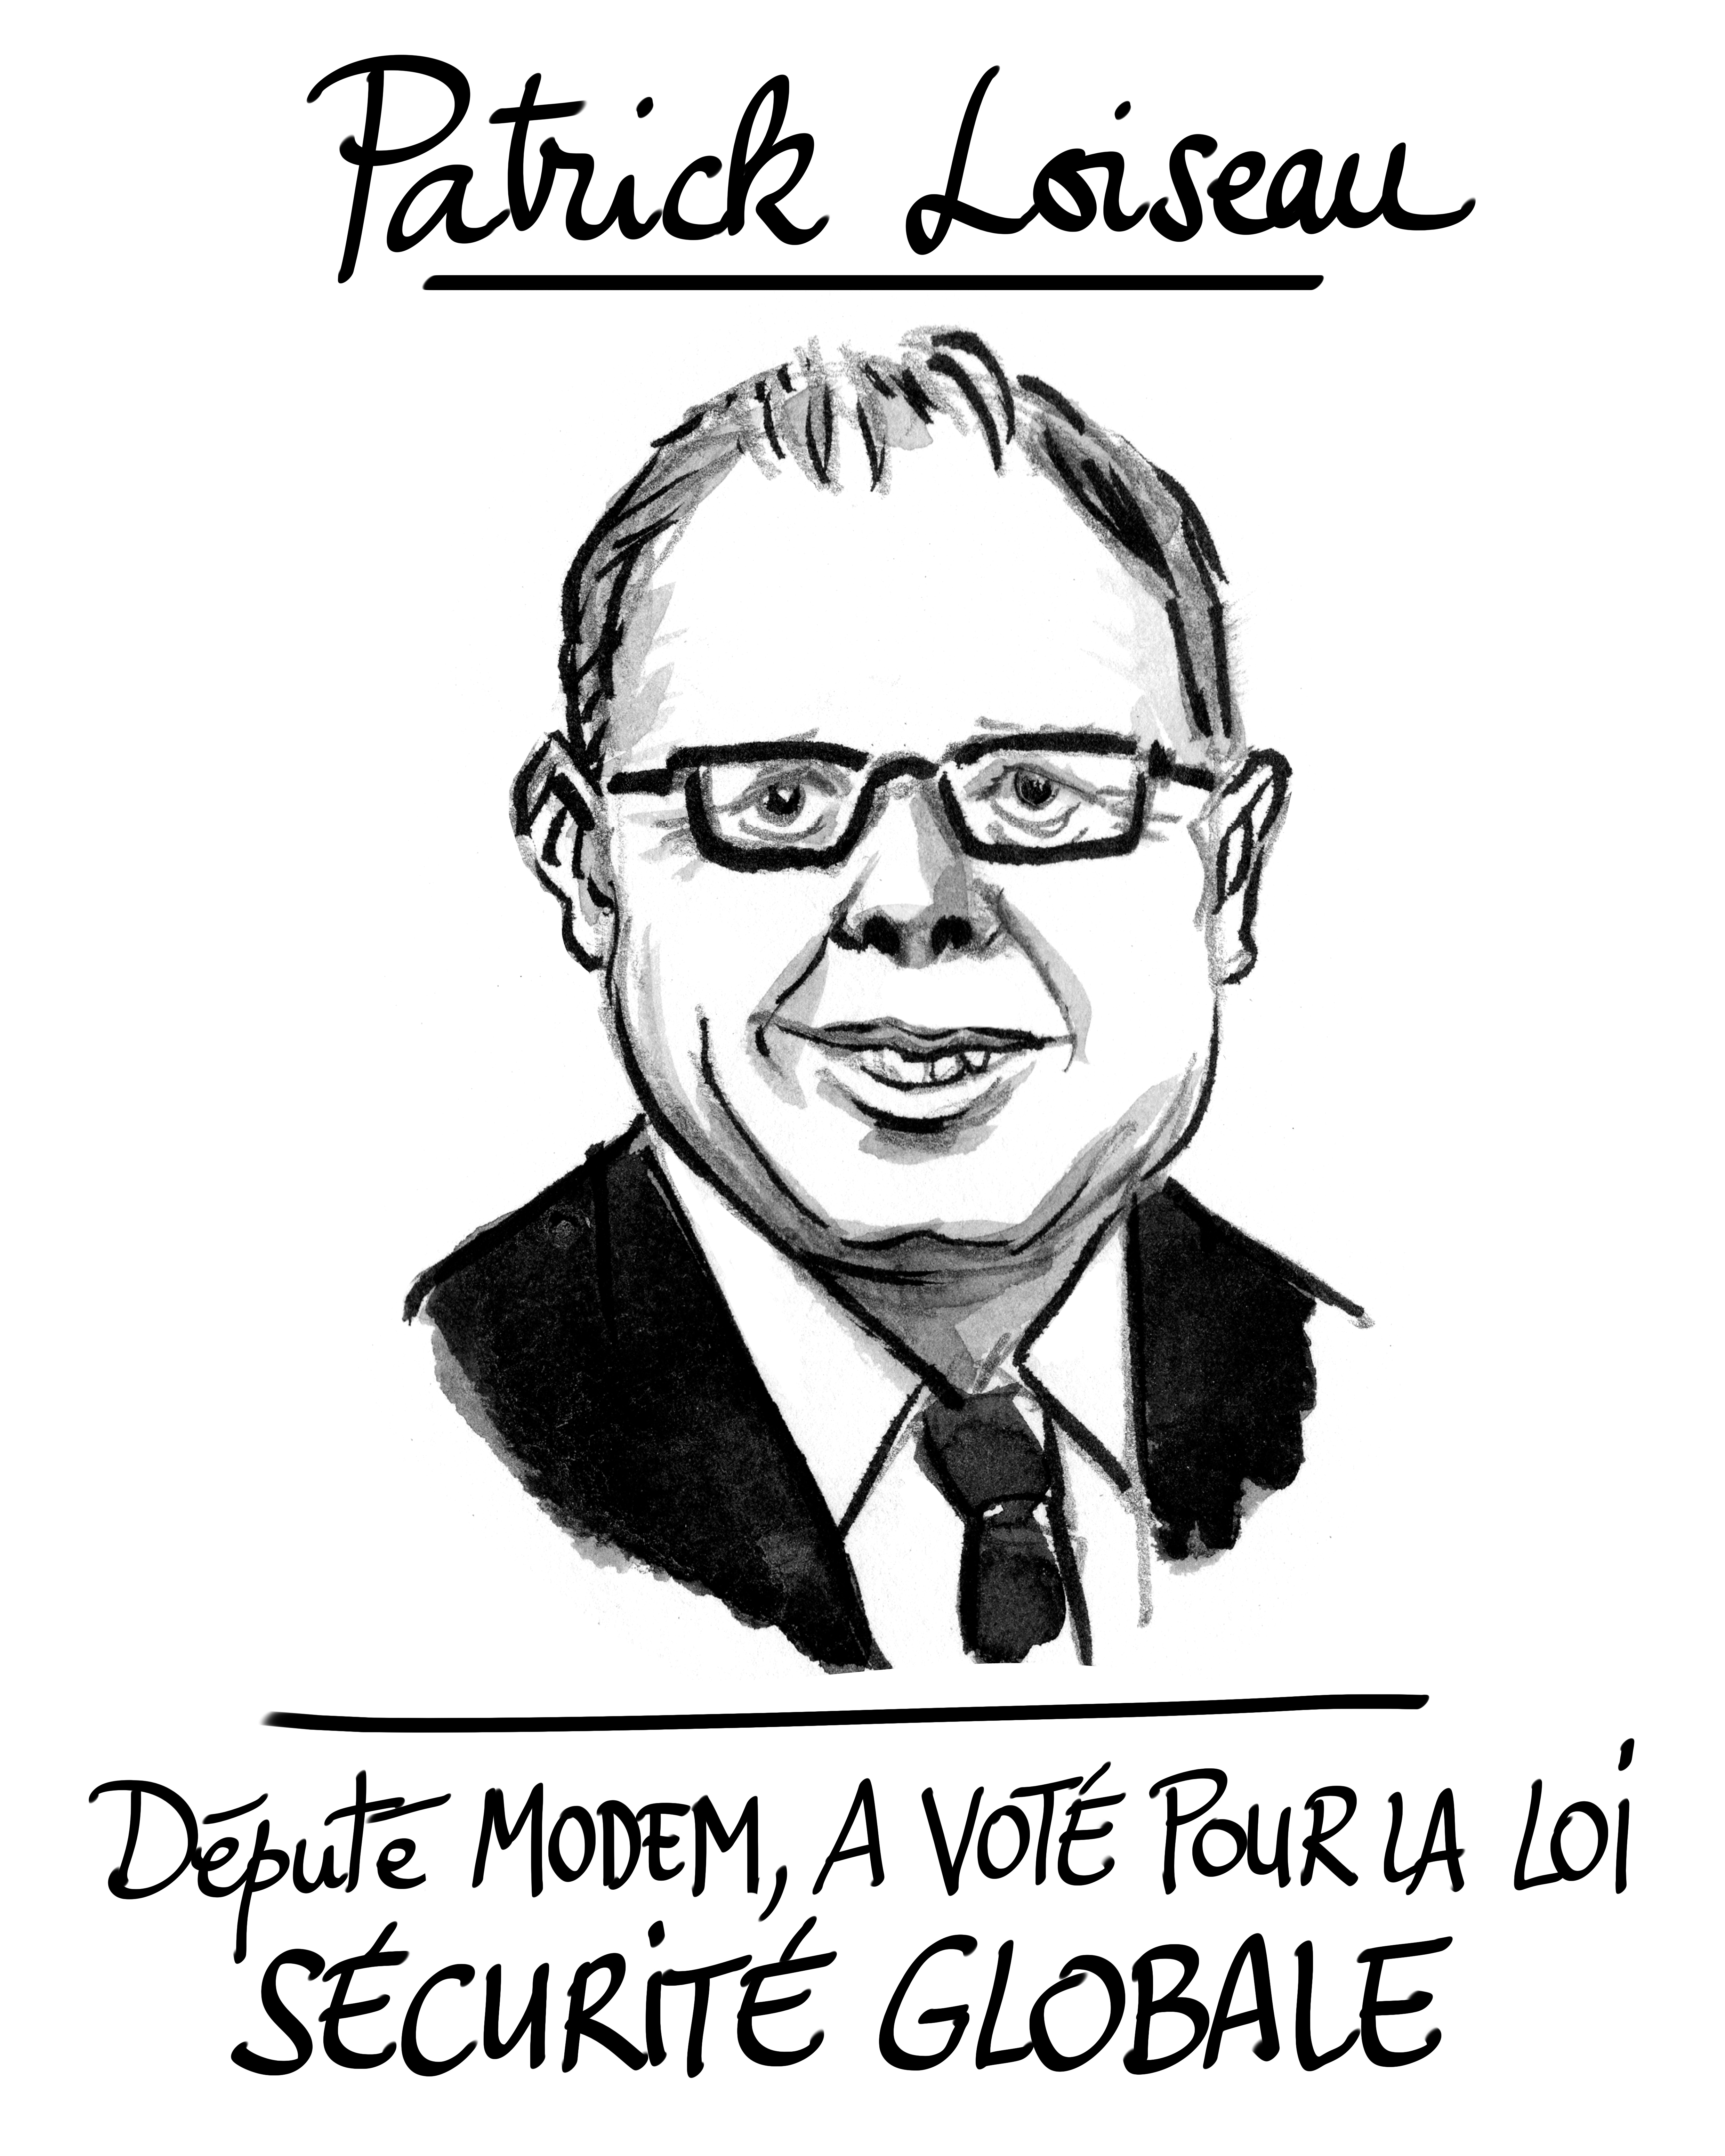 Patrick Loiseau
Député MODEM, A VOTÉ POUR LA LOI
SÉCURITÉ GLOBALE